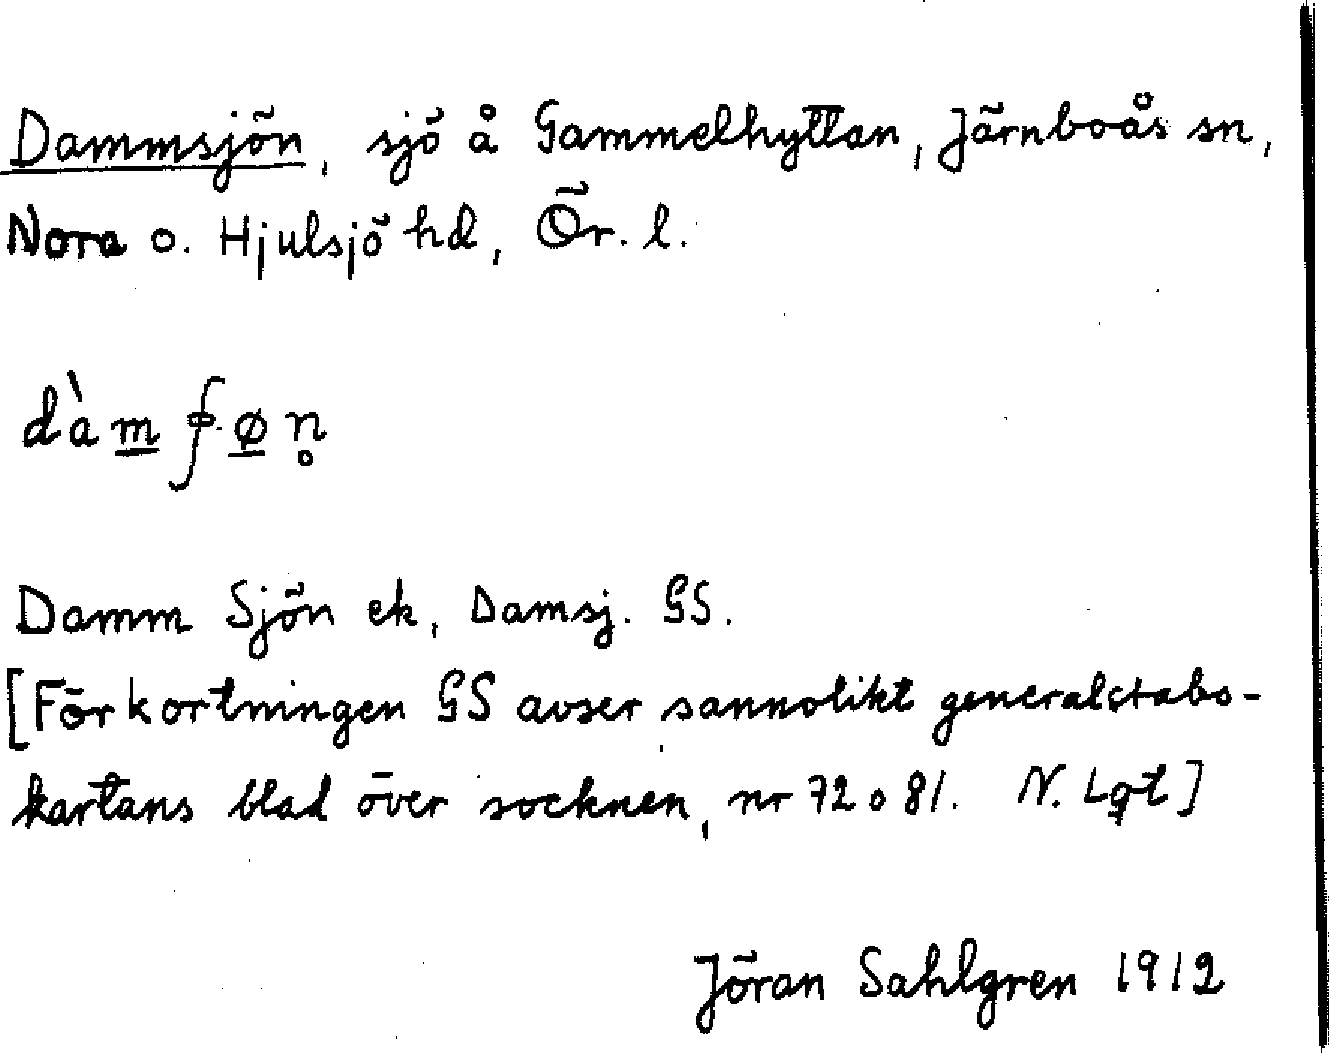 Dammsjön, sjö å Gammelhyttan, Järnboås sn,
Nora o. Hjulsjö hd, Ör. l.
dàm̲ʄø̲n̥
Damm Sjön ek, Damsj. GS.
[Förkortningen GS avser sannolikt generalstabs-
kartans blad över socknen, nr 72 o 81. N. Lgt]
Jöran Sahlgren 1912